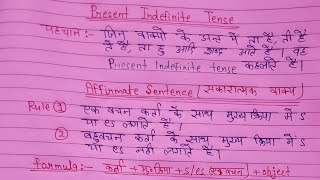 Present Indefinite Tense
पहचान :- जिन वाक्यों के अन्त में ता है, ती है
ते है, ता हूं आदि शब्द आते है। वह
Present Indefinite tense कहलाते है।
Affirmate Sentence / सकारात्मक वाक्य
Rule ① एक वचन कर्ता के साथ मुख्य क्रिया में s
या es लगाते है।
② बहुवचन कर्ता के साथ मुख्य क्रिया में s
या es नही लगाते है।
Formula :- कर्ता + मु०क्रिया + s/es (एक वचन) + object